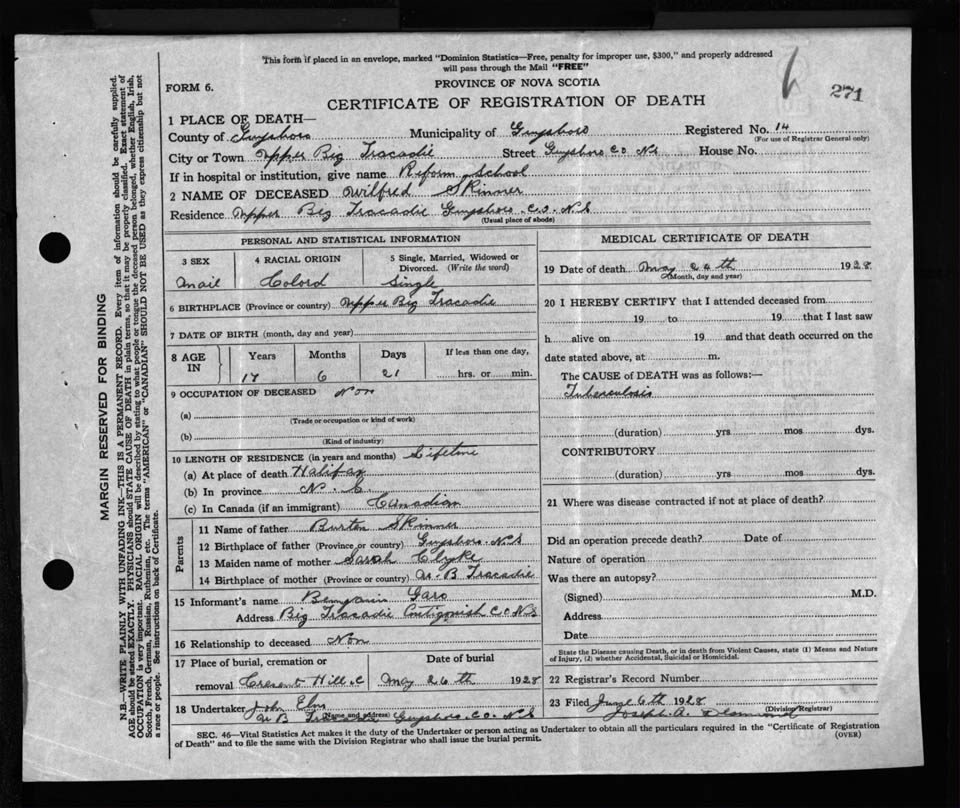 This form if placed in an envelope, marked "Dominion Statistics—Free, penalty for improper use, $300," and properly addressed
will pass through the Mail "FREE"
FORM 6.
PROVINCE OF NOVA SCOTIA
271
CERTIFICATE OF REGISTRATION OF DEATH
1 PLACE OF DEATH—
County of Guysboro Municipality of Guysboro Registered No. 14
(For use of Registrar General only)
City or Town Upper Big Tracadie Street Guysboro Co NS House No.
If in hospital or institution, give name Reform School
2 NAME OF DECEASED Wilfred Skinner
Residence Upper Big Tracadie Guysboro Co. N S
(Usual place of abode)
PERSONAL AND STATISTICAL INFORMATION
3 SEX 4 RACIAL ORIGIN 5 Single, Married, Widowed or
Divorced. (Write the word)
Mail Colord Single
6 BIRTHPLACE (Province or country) Upper Big Tracadie
7 DATE OF BIRTH (month, day and year)
8 AGE IN Years Months Days If less than one day,
17 6 21 hrs. or min.
9 OCCUPATION OF DECEASED Non
(a)
(Trade or occupation or kind of work)
(b)
(Kind of industry)
10 LENGTH OF RESIDENCE (in years and months) Lifetime
(a) At place of death Halifax
(b) In province N. S
(c) In Canada (if an immigrant) Canadian
Parents
11 Name of father Burton Skinner
12 Birthplace of father (Province or country) Guysboro. N S
13 Maiden name of mother Sarah Clyke
14 Birthplace of mother (Province or country) U. B Tracadie
15 Informant's name Benjamin Gero
Address Big Tracadie Antigonish Co N S
16 Relationship to deceased Non
17 Place of burial, cremation or Date of burial
removal Cresent Hill C May 26th 1928
18 Undertaker John Elms
(Name and address)
U B Tracadie Guysboro. Co. N S
MEDICAL CERTIFICATE OF DEATH
19 Date of death May 24th 1928
(Month, day and year)
20 I HEREBY CERTIFY that I attended deceased from
19 to 19 that I last saw
h alive on 19 and that death occurred on the
date stated above, at m.
The CAUSE of DEATH was as follows:—
Tuberculosis
(duration) yrs mos dys.
CONTRIBUTORY
(duration) yrs mos dys.
21 Where was disease contracted if not at place of death?
Did an operation precede death? Date of
Nature of operation
Was there an autopsy?
(Signed) M.D.
Address
Date
State the Disease causing Death, or in death from Violent Causes, state (1) Means and Nature
of Injury, (2) whether Accidental, Suicidal or Homicidal.
22 Registrar's Record Number
23 Filed June 6th 1928
Joseph A. Desmond
(Division Registrar)
SEC. 46—Vital Statistics Act makes it the duty of the Undertaker or person acting as Undertaker to obtain all the particulars required in the "Certificate of Registration
of Death" and to file the same with the Division Registrar who shall issue the burial permit.
(OVER)
MARGIN RESERVED FOR BINDING
N.B.—WRITE PLAINLY WITH UNFADING INK—THIS IS A PERMANENT RECORD. Every item of information should be carefully supplied.
AGE should be stated EXACTLY. PHYSICIANS should STATE CAUSE OF DEATH in plain terms, so that it may be properly classified. Exact statement of
OCCUPATION is very important. RACIAL ORIGIN will be described by stating to what people or tongue the deceased person belonged, whether English, Irish,
Scotch, French, German, Russian, Ruthenian, etc. The terms "AMERICAN" or "CANADIAN" SHOULD NOT BE USED as they express citizenship but not
a race or people. See instructions on back of Certificate.